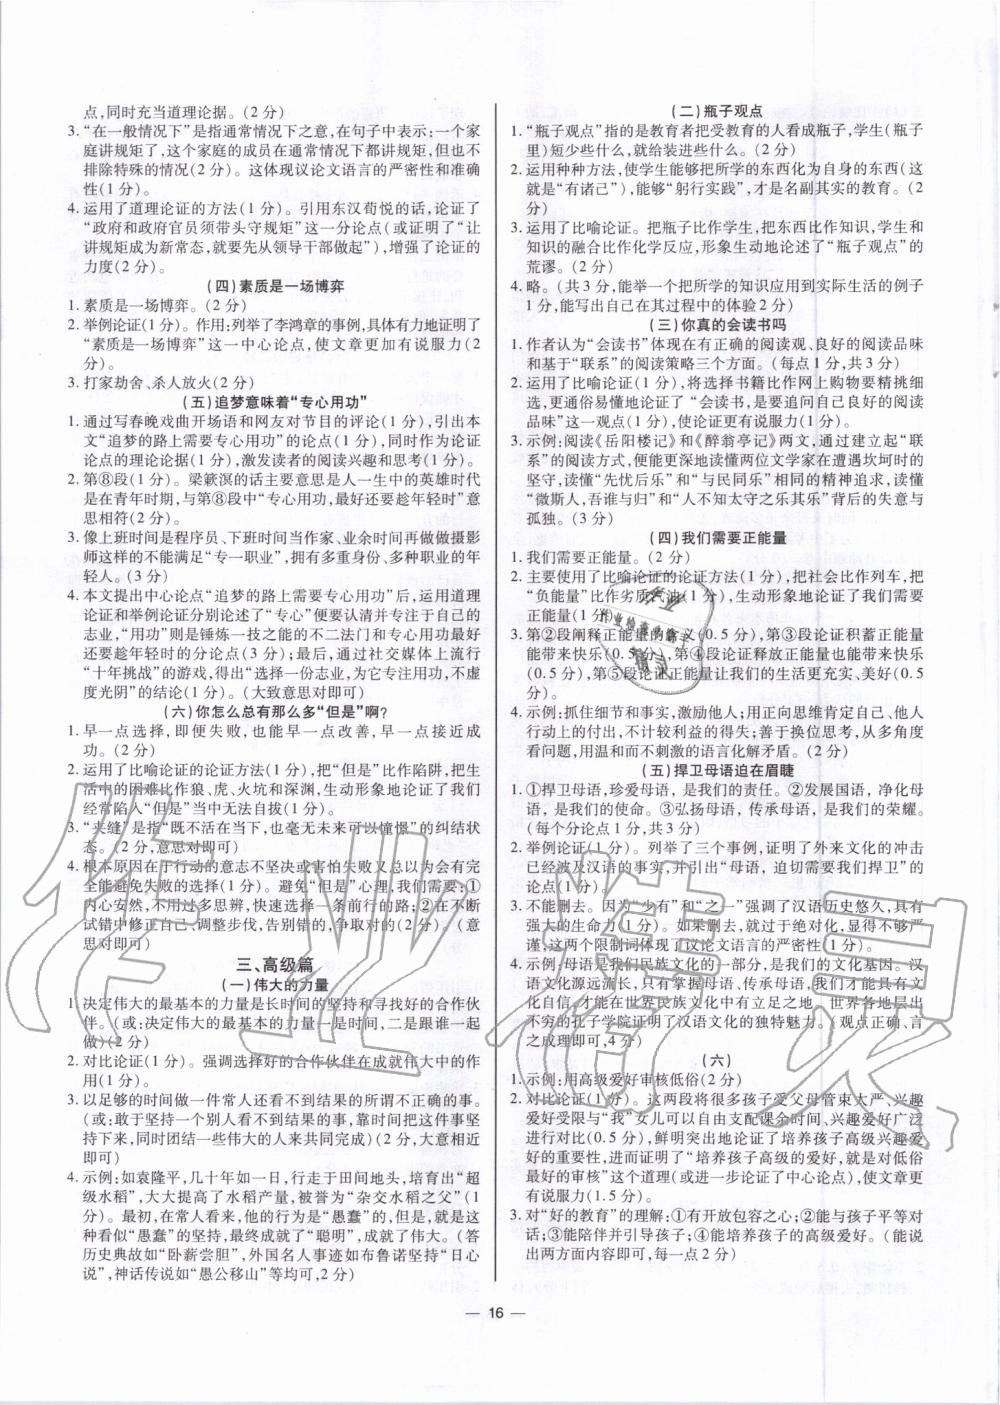 点,同时充当道理论据。(2 分)
3. “在一般情况下”是指通常情况下之意,在句子中表示:一个家
庭讲规矩了,这个家庭的成员在通常情况下都讲规矩,但也不
排除特殊的情况(2 分)。这体现议论文语言的严密性和准确
性(1 分)。
4. 运用了道理论证的方法(1 分)。引用东汉荀悦的话,论证了
“政府和政府官员须带头守规矩”这一分论点(或证明了“让
讲规矩成为新常态,就要先从领导干部做起”),增强了论证的
力度(2 分)。
(四)素质是一场博弈
1. 素质是一场博弈。(2 分)
2. 举例论证(1 分)。作用:列举了李鸿章的事例,具体有力地证明了
“素质是一场博弈”这一中心论点,使文章更加有说服力(2
分)。
3. 打家劫舍、杀人放火(2 分)
(五)追梦意味着“专心用功”
1. 通过写春晚戏曲开场语和网友对节目的评论(1 分),引出本
文“追梦的路上需要专心用功”的论点(1 分),同时作为论证
论点的理论论据(1 分),激发读者的阅读兴趣和思考(1 分)。
2. 第⑧段(1 分)。梁簌溟的话主要意思是人一生中的英雄时代
是在青年时期,与第⑧段中“专心用功,最好还要趁年轻时”意
思相符(2 分)。
3. 像上班时间是程序员、下班时间当作家、业余时间再做做摄影
师这样的不能满足“专一职业”,拥有多重身份、多种职业的年
轻人。(3 分)
4. 本文提出中心论点“追梦的路上需要专心用功”后,运用道理
论证和举例论证分别论述了“专心”便要认清并专注于自己的
志业,“用功”则是锤炼一技之能的不二法门和专心用功最好
还要趁年轻时的分论点(3 分);最后,通过社交媒体上流行
“十年挑战”的游戏,得出“选择一份志业,为它专心用功,不虚
度光阴”的结论(1 分)。(大致意思对即可)
(六)你怎么总有那么多“但是”啊?
1. 早一点选择,即便失败,也能早一点改善,早一点接近成
功。(2 分)
2. 运用了比喻论证的论证方法(1 分),把“但是”比作陷阱,把生
活中的困难比作狼、虎、火坑和深渊,生动形象地论证了我们
经常陷入“但是”中无法自拔(1 分)。
3. “夹缝”是指“既不活在当下,也毫无未来可以憧憬”的纠结状
态。(2 分,意思对即可)
4. 根本原因在于行动的意志不坚决或害怕失败又总以为会有完
全能避免失败的选择(1 分)。避免“但是”心理,我们需要:①
内心安然,不用过多思辨,快速选择一条前行的路;②在不断
试错中修正自己、调整步伐,告别错的,争取对的(2 分)。(意
思对即可)
三、高级篇
(一)伟大的力量
1. 决定伟大的最基本的力量是长时间的坚持和寻找好的合作伙
伴。(或:决定伟大的最基本的力量一是时间,二是跟谁一起
做)(2 分)
2. 对比论证(1 分)。强调选择好的合作伙伴在成就伟大中的作
用(1 分)。
3. 以足够的时间做一件常人还看不到结果的所谓不正确的事。
(或:敢于坚持一个别人看不到结果的事,靠时间把这件事坚持
下去,同时团结一些伟大的人来共同完成)(2 分,大意相近即
可)
4. 示例:如袁隆平,几十年如一日,行走于田间地头,培育出“超
级水稻”,大大提高了水稻产量,被誉为“杂交水稻之父”(1
分)。最初,在常人看来,他的行为是“愚蠢”的,但是,就是这
种看似“愚蠢”的坚持,最终成就了“聪明”,成就了伟大。(答
历史典故如“卧薪尝胆”,外国名人事迹如布鲁诺坚持“日心
说”,神话传说如“愚公移山”等均可,2 分)
(二)瓶子观点
1. “瓶子观点”指的是教育者把受教育的人看成瓶子,学生(瓶子
里)短少些什么,就给装进些什么。(2 分)
2. 运用种种方法,使学生能够把所学的东西化为自身的东西(这
就是“有诸己”),能够“躬行实践”,才是名副其实的教育。(2
分)
3. 运用了比喻论证。把瓶子比作学生,把东西比作知识,学生和
知识的融合比作化学反应,形象生动地论述了“瓶子观点”的
荒谬。(3 分)
4. 略。(共 3 分,能举一个把所学的知识应用到实际生活的例子
1 分,能写出自己在其过程中的体验 2 分)
(三)你真的会读书吗
1. 作者认为“会读书”体现在有正确的阅读观、良好的阅读品味
和基于“联系”的阅读策略三个方面。(每点 1 分,共 3 分)
2. 运用了比喻论证(1 分),将选择书籍比作网上购物要精挑细
选,更通俗易懂地论证了“会读书,是要追问自己良好的阅读
品味”这一观点(1 分),使论证更有说服力(1 分)。
3. 示例:阅读《岳阳楼记》和《醉翁亭记》两文,通过建立起“联
系”的阅读方式,便能更深地读懂两位文学家在遭遇坎坷时的
坚守,读懂“先忧后乐”和“与民同乐”相同的精神追求,读懂
“微斯人,吾谁与归”和“人不知太守之乐其乐”背后的失意与
孤独。(3 分)
(四)我们需要正能量
1. 我们需要正能量。(2 分)
2. 主要使用了比喻论证的论证方法(1 分),把社会比作列车,把
“负能量”比作劣质汽油(1 分),生动形象地论证了我们需要
正能量(1 分)。
3. 第②段阐释正能量的含义(0.5 分),第③段论证积蓄正能量
能带来快乐(0.5 分),第④段论证释放正能量也能带来快乐
(0.5 分),第⑤段论证正能量让我们的生活更充实、美好(0.5
分)。
4. 示例:抓住细节和事实,激励他人;用正向思维肯定自己、他人
行动上的付出,不计较利益的得失;善于换位思考,从多角度
看问题,用温和而不刺激的语言化解矛盾。(2 分)
(五)捍卫母语迫在眉睫
1. ①捍卫母语,珍爱母语,是我们的责任。②发展国语,净化母
语,是我们的使命。③弘扬母语,传承母语,是我们的荣耀。
(每个分论点 1 分,共 3 分)
2. 举例论证(1 分)。列举了三个事例,证明了外来文化的冲击
已经波及汉语的事实,并引出“母语,迫切需要我们捍卫”的
论点(1 分)。
3. 不能删去。因为“少有”和“之一”强调了汉语历史悠久,具有
强大的生命力(1 分)。如果删去,就过于绝对化,显得不够严
谨,这两个限制词体现了议论文语言的严密性(1 分)。
4. 示例:母语是我们民族文化的一部分,是我们的文化基因。汉
语文化源远流长,只有掌握母语,传承母语,才能有丰富的文
化积淀,才能在世界民族文化中有立足之地。世界各地层出
不穷的孔子学院证明了汉语文化的独特魅力。(观点正确、言
之成理即可,4 分)
(六)
1. 示例:用高级爱好审核低俗(2 分)
2. 对比论证(1 分)。这两段将很多孩子受父母管束太严、兴趣
爱好受限与“我”女儿可以自由支配课余时间、兴趣爱好广泛
进行对比(0.5 分),鲜明突出地论证了培养孩子高级兴趣爱
好的重要性,进而证明了“培养孩子高级的爱好,就是对低俗
最好的审核”这个道理(或进一步论证了中心论点),使文章更
有说服力(1.5 分)。
3. 对“好的教育”的理解:①有开放包容之心;②能与孩子平等对
话;③能陪伴并引导孩子;④能培养孩子的高级爱好。(能说
出两方面内容即可,每一点 2 分)
— 16 —
作业精灵